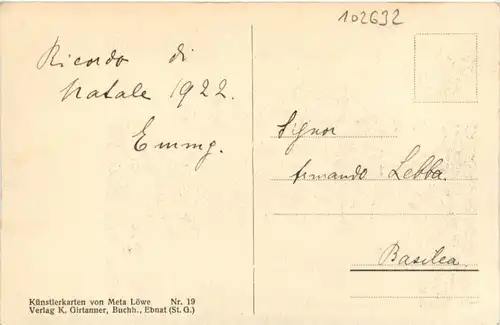 102632
Ricordo di
Natale 1922.
Emmy.
Signor
Armando Lebba.
Basilea
Künstlerkarten von Meta Löwe Nr. 19
Verlag K. Girtanner, Buchh., Ebnat (St. G.)